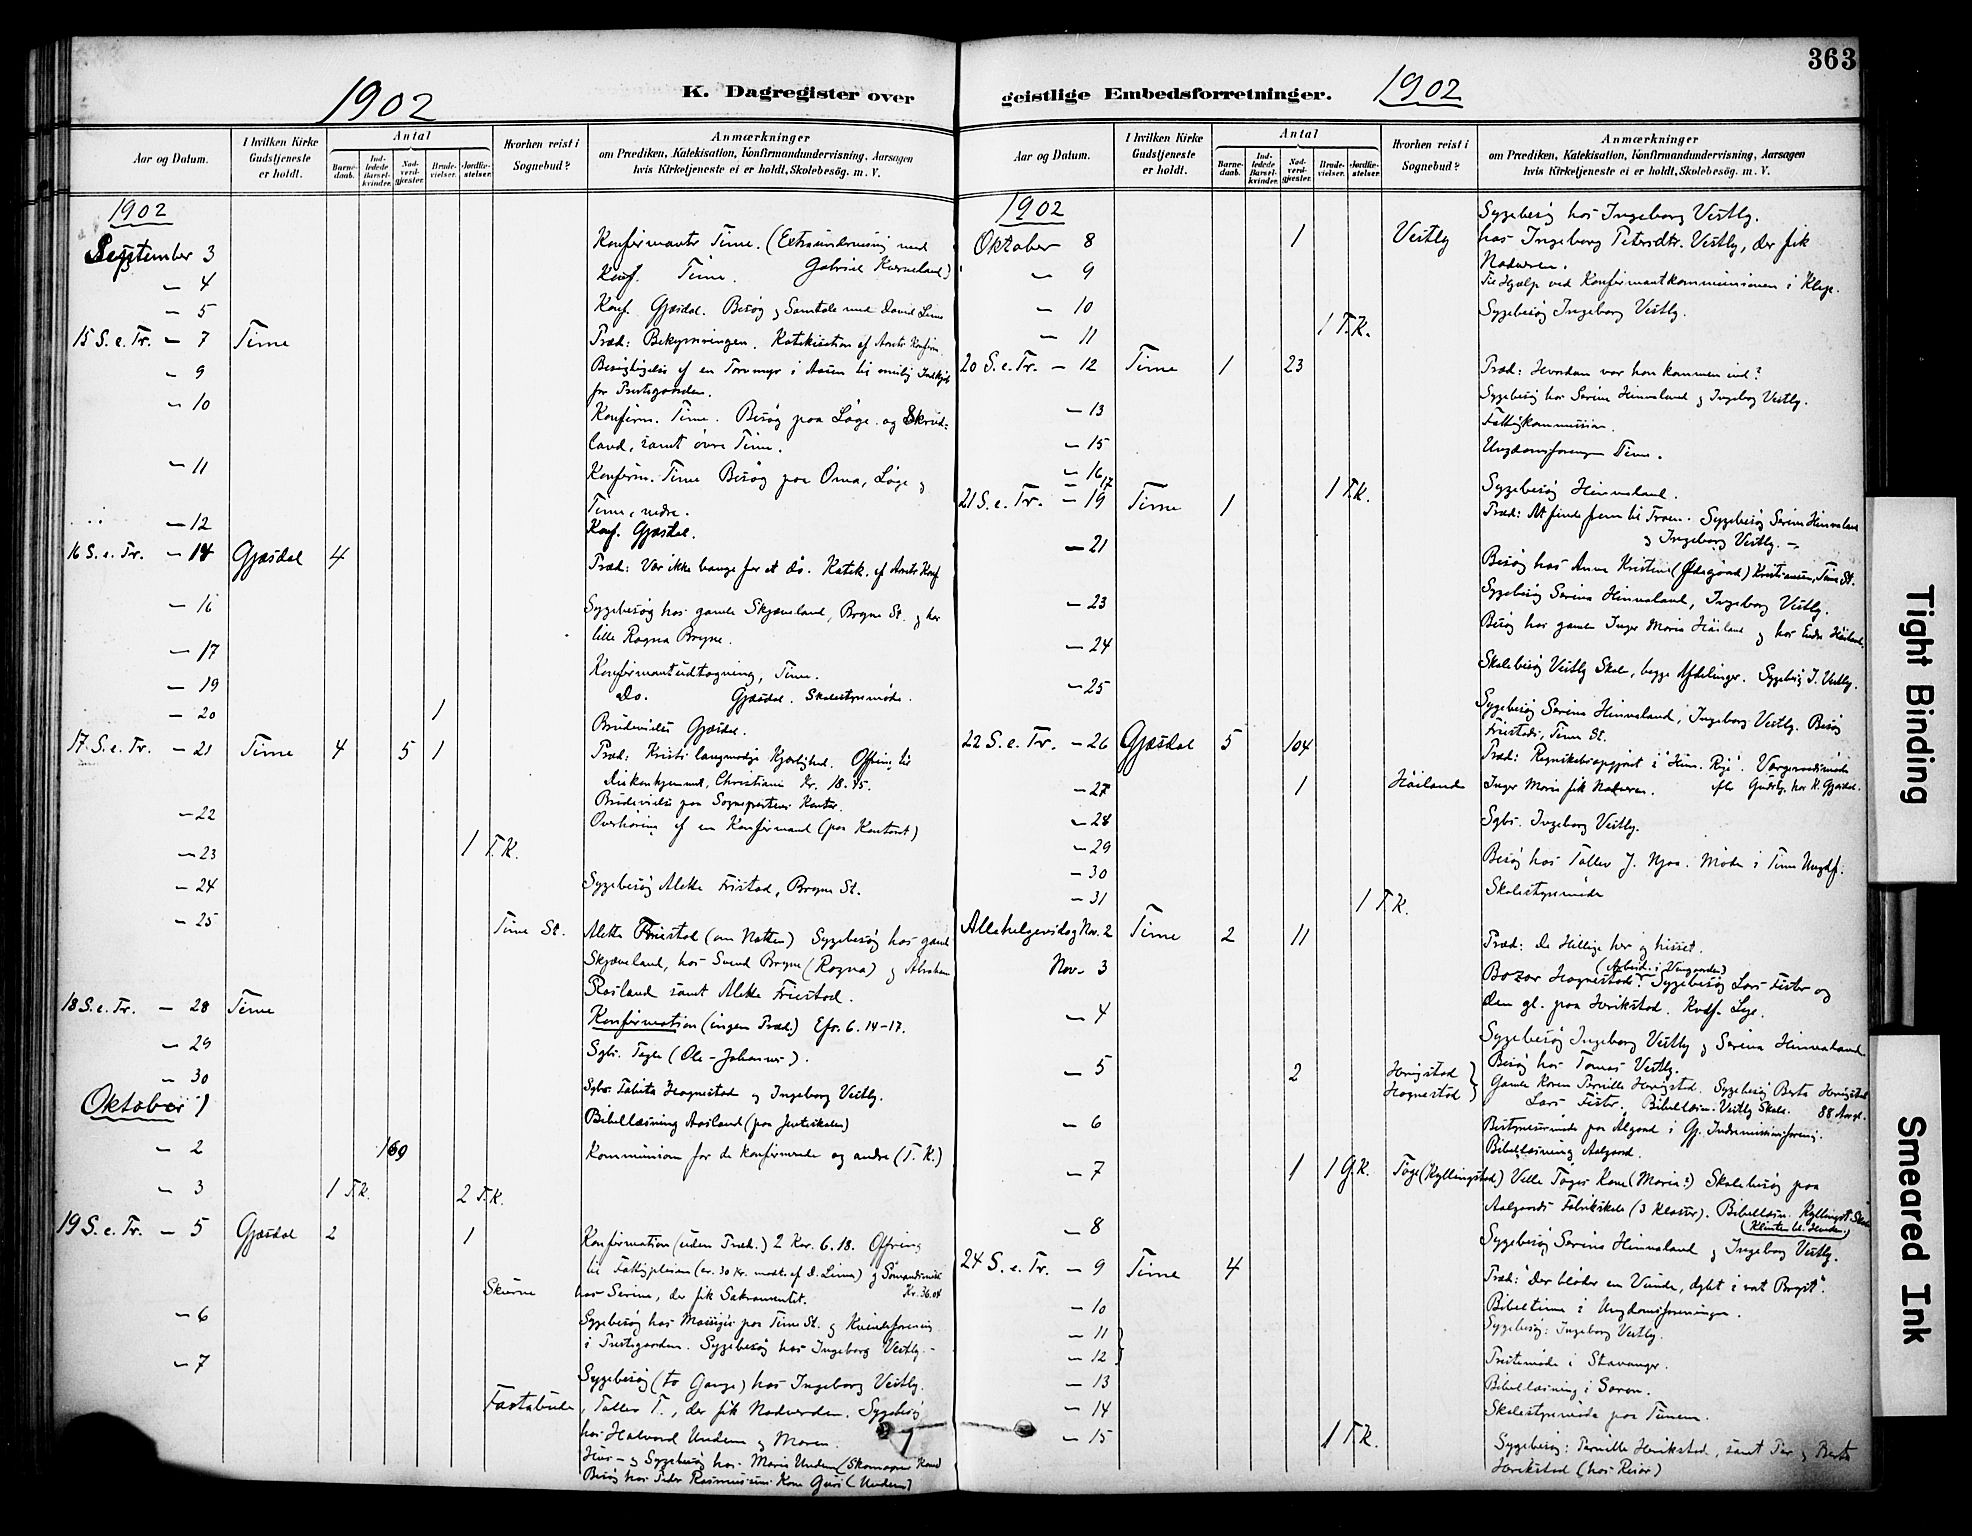 363
1902
K. Dagregister over
Aar og Datum.
I hvilken Kirke Gudstjeneste er holdt.
Antal
Barnedaab.
Indledede Barselkvinder.
Nadverdgjester.
Brudevielser.
Jordfæstelser.
Hvorhen reist i Sognebud?
Anmærkninger
om Prædiken, Katekisation, Konfirmandundervisning, Aarsagen
hvis Kirketjeneste ei er holdt, Skolebesög. m. V.
1902
September 3 Konfirmanter Time. (Extraundervisning med
Gabriel Kverneland)
— 4 Konf. Time.
— 5 Konf. Gjæsdal. Besøg og Samtale med David Lima
15 S. e. Tr. — 7 Time Præd: Bekymringen. Katekisation af Aarets Konfirm.
— 9 Besigtigelse af en Torvmyr i Aasen til mulig Indkjøb
for Prestegaarden.
— 10 Konfirm. Time. Besøg paa Løge og Skrud-
land, samt øvre Time.
— 11 Konfirm. Time Besøg paa Oma, Løge og
Time, nedre.
— 12 Konf. Gjæsdal.
16 S. e. Tr. — 14 Gjæsdal 4 Præd: Vær ikke bange for at dø. Katek. af Aarets Konf
— 16 Sygebesøg hos gamle Skjæveland, Bryne St. og hos
lille Ragna Bryne.
— 17 Konfirmantudtagning, Time.
— 19 Do. Gjæsdal. Skolestyremøde.
— 20 1 Brudevielse Gjæsdal.
17. S. e. Tr. — 21 Time 4 5 1 Præd: Kristi langmodige Kjærlighed. Ofring til
Diakonhjemmet, Christiania Kr. 18.45.
Brudevielse paa Sogneprestens Kontor.
— 22 Overhøring af en Konfirmand (paa Kontoret)
— 23 1 T.K.
— 24 Sygebesøg Alette Fristad, Bryne St.
— 25 Time St. Alette Friestad (om Natten) Sygebesøg hos gamle
Skjæveland, hos Svend Bryne (Ragna) og Abraham
Rosland samt Alette Friestad.
18 S. e. Tr. — 28 Time Konfirmation (ingen Præd.) Efes. 6. 14-17.
— 29 Sgbs. Tegle (Ole - Johannes).
— 30 Sgbs. Tabita Hognestad og Ingeborg Vestly.
Oktober 1 Bibellæsning Aasland (paa Jenteskolen)
— 2 169 Kommunion for de konfirmerede og andre (T. K.)
— 3 1 T.K. 2 T.K.
19 S. e. Tr. — 5 Gjæsdal 2 1 Konfirmation (uden Præd.) 2 Kor. 6. 18. Ofring
til Fattigpleien (ca. 30 Kr. modt. af D. Lima) og Sømandsmisk
Kr. 36.04
Skurve hos Serine, der fik Sakramentet.
— 6 Sygebesøg hos Mauritz paa Time St. og Kvindeforening
i Prestegaarden. Sygebesøg hos Ingeborg Vestly. —
— 7 Sygebesøg (to Gange) hos Ingeborg Vestly.
Fastabude, Tallev T., der fik Nadverden. Sygebesøg
hos Halvord Undem og Moren.
Hus- og Sygebesøg hos Marie Undem (Skomager Kone)
Besøg hos Peder Rasmussens Kone Guri (Undem)
geistlige Embedsforretninger.
1902
Aar og Datum.
I hvilken Kirke Gudstjeneste er holdt.
Antal
Barnedaab.
Indledede Barselkvinder.
Nadverdgjester.
Brudevielser.
Jordfæstelser.
Hvorhen reist i Sognebud?
Anmærkninger
om Prædiken, Katekisation, Konfirmandundervisning, Aarsagen
hvis Kirketjeneste ei er holdt, Skolebesög. m. V.
1902
Sygebesøg hos Ingeborg Vestly.
Oktober 8 1 Vestly hos Ingeborg Petersdtr. Vestly, der fik
Nadveren.
— 9 Til Hjælp ved Konfirmantkommunionen i Klep.
— 10 Sygebesøg Ingeborg Vestly.
— 11 1 T.K.
20 S. e. Tr. — 12 Time 1 23 Præd: Hvordan var han kommen ind?
— 13 Sygebesøg hos Serine Hinnaland og Ingeborg Vestly.
Fattigkommission.
— 15 Ungdomsforeningen Time.
— 16, 17 1 T.K. Sygebesøg Hinnaland.
21 S. e. Tr. — 19 Time 1 Præd: At finde frem til Troen. Sygebesøg Serine Hinnaland
og Ingeborg Vestly. —
— 21 Besøg hos Anna Kristine (Ødegaard) Kristiansen, Time St.
— 23 Sygebesøg Serina Hinnaland, Ingeborg Vestly.
Besøg hos gamle Inger Maria Høiland og hos Endre Høiland.
— 24 Skolebesøg Vestly Skole, begge Afdelinger. Sygebesøg I. Vestly.
— 25 Sygebesøg Serine Hinnaland, Ingeborg Vestly. Besøg
Fristads, Time St.
22 S. e. Tr. — 26 Gjæsdal 5 104 Præd: Regnskabsopgjøret i "Him. Rige". Værgeraadsmøde
efter Gudstj. hos K. Gjæsdal.
— 27 1 Høiland Inger Marie fik Nadveren.
— 28 Sgbs. Ingeborg Vestly.
— 29
— 30 Besøg hos Tallev J. Njaa. Møde i Time Ungdf.
— 31 Skolestyremøde
1 T.K.
Allehelgensdag Nov. 2 Time 2 11 Præd: De Hellige her og hisset.
Nov. 3 (Arbeid. i Vingaarden)
Bazar Hognestad. Sygebesøg Lars Fister og
den gl. paa Herikstad. Kvdf. Lye.
— 4 Sygebesøg Ingeborg Vestly og Serina Hinnaland
Besøg hos Tomas Vestly.
— 5 2 Herigstad Hognestad } Gamle Karen Pernille Herigstad. Sygebesøg Berta Herigstad
Lars Fister. Bibellæsn. Vestly Skole. 88 Aar gl.
— 6 Bestyrelsesmøde paa Algaard i Gj. Indremissionsforening.
Bibellæsning Aalgaard.
— 7 1 1 G.K. Tøge (Kyllingstad) Velle Tøges Kone (Maria:) Skolebesøg paa
Aalgaards Fabrikskole (3 Klasser). Bibellæsn. Kyllingst. Skole
— 8 Sygebesøg Serina Hinnaland og Ingeborg Vestly.
24 S. e. Tr. — 9 Time 4 Præd: "Der bløder en Vunde, dybt i vort Bryst".
— 10 Bibeltime i Ungdomsforeningen.
— 11 } Sygebesøg: Ingeborg Vestly.
— 12 } Prestemøde i Stavanger.
— 13 Bibellæsning i Salen.
— 14 Skolestyremøde paa Tunem.
— 15 1 T.K. Sygebesøg: Pernille Herikstad, samt Per og Berta
Herikstad (hos Reiar)
Tight Binding
Smeared Ink